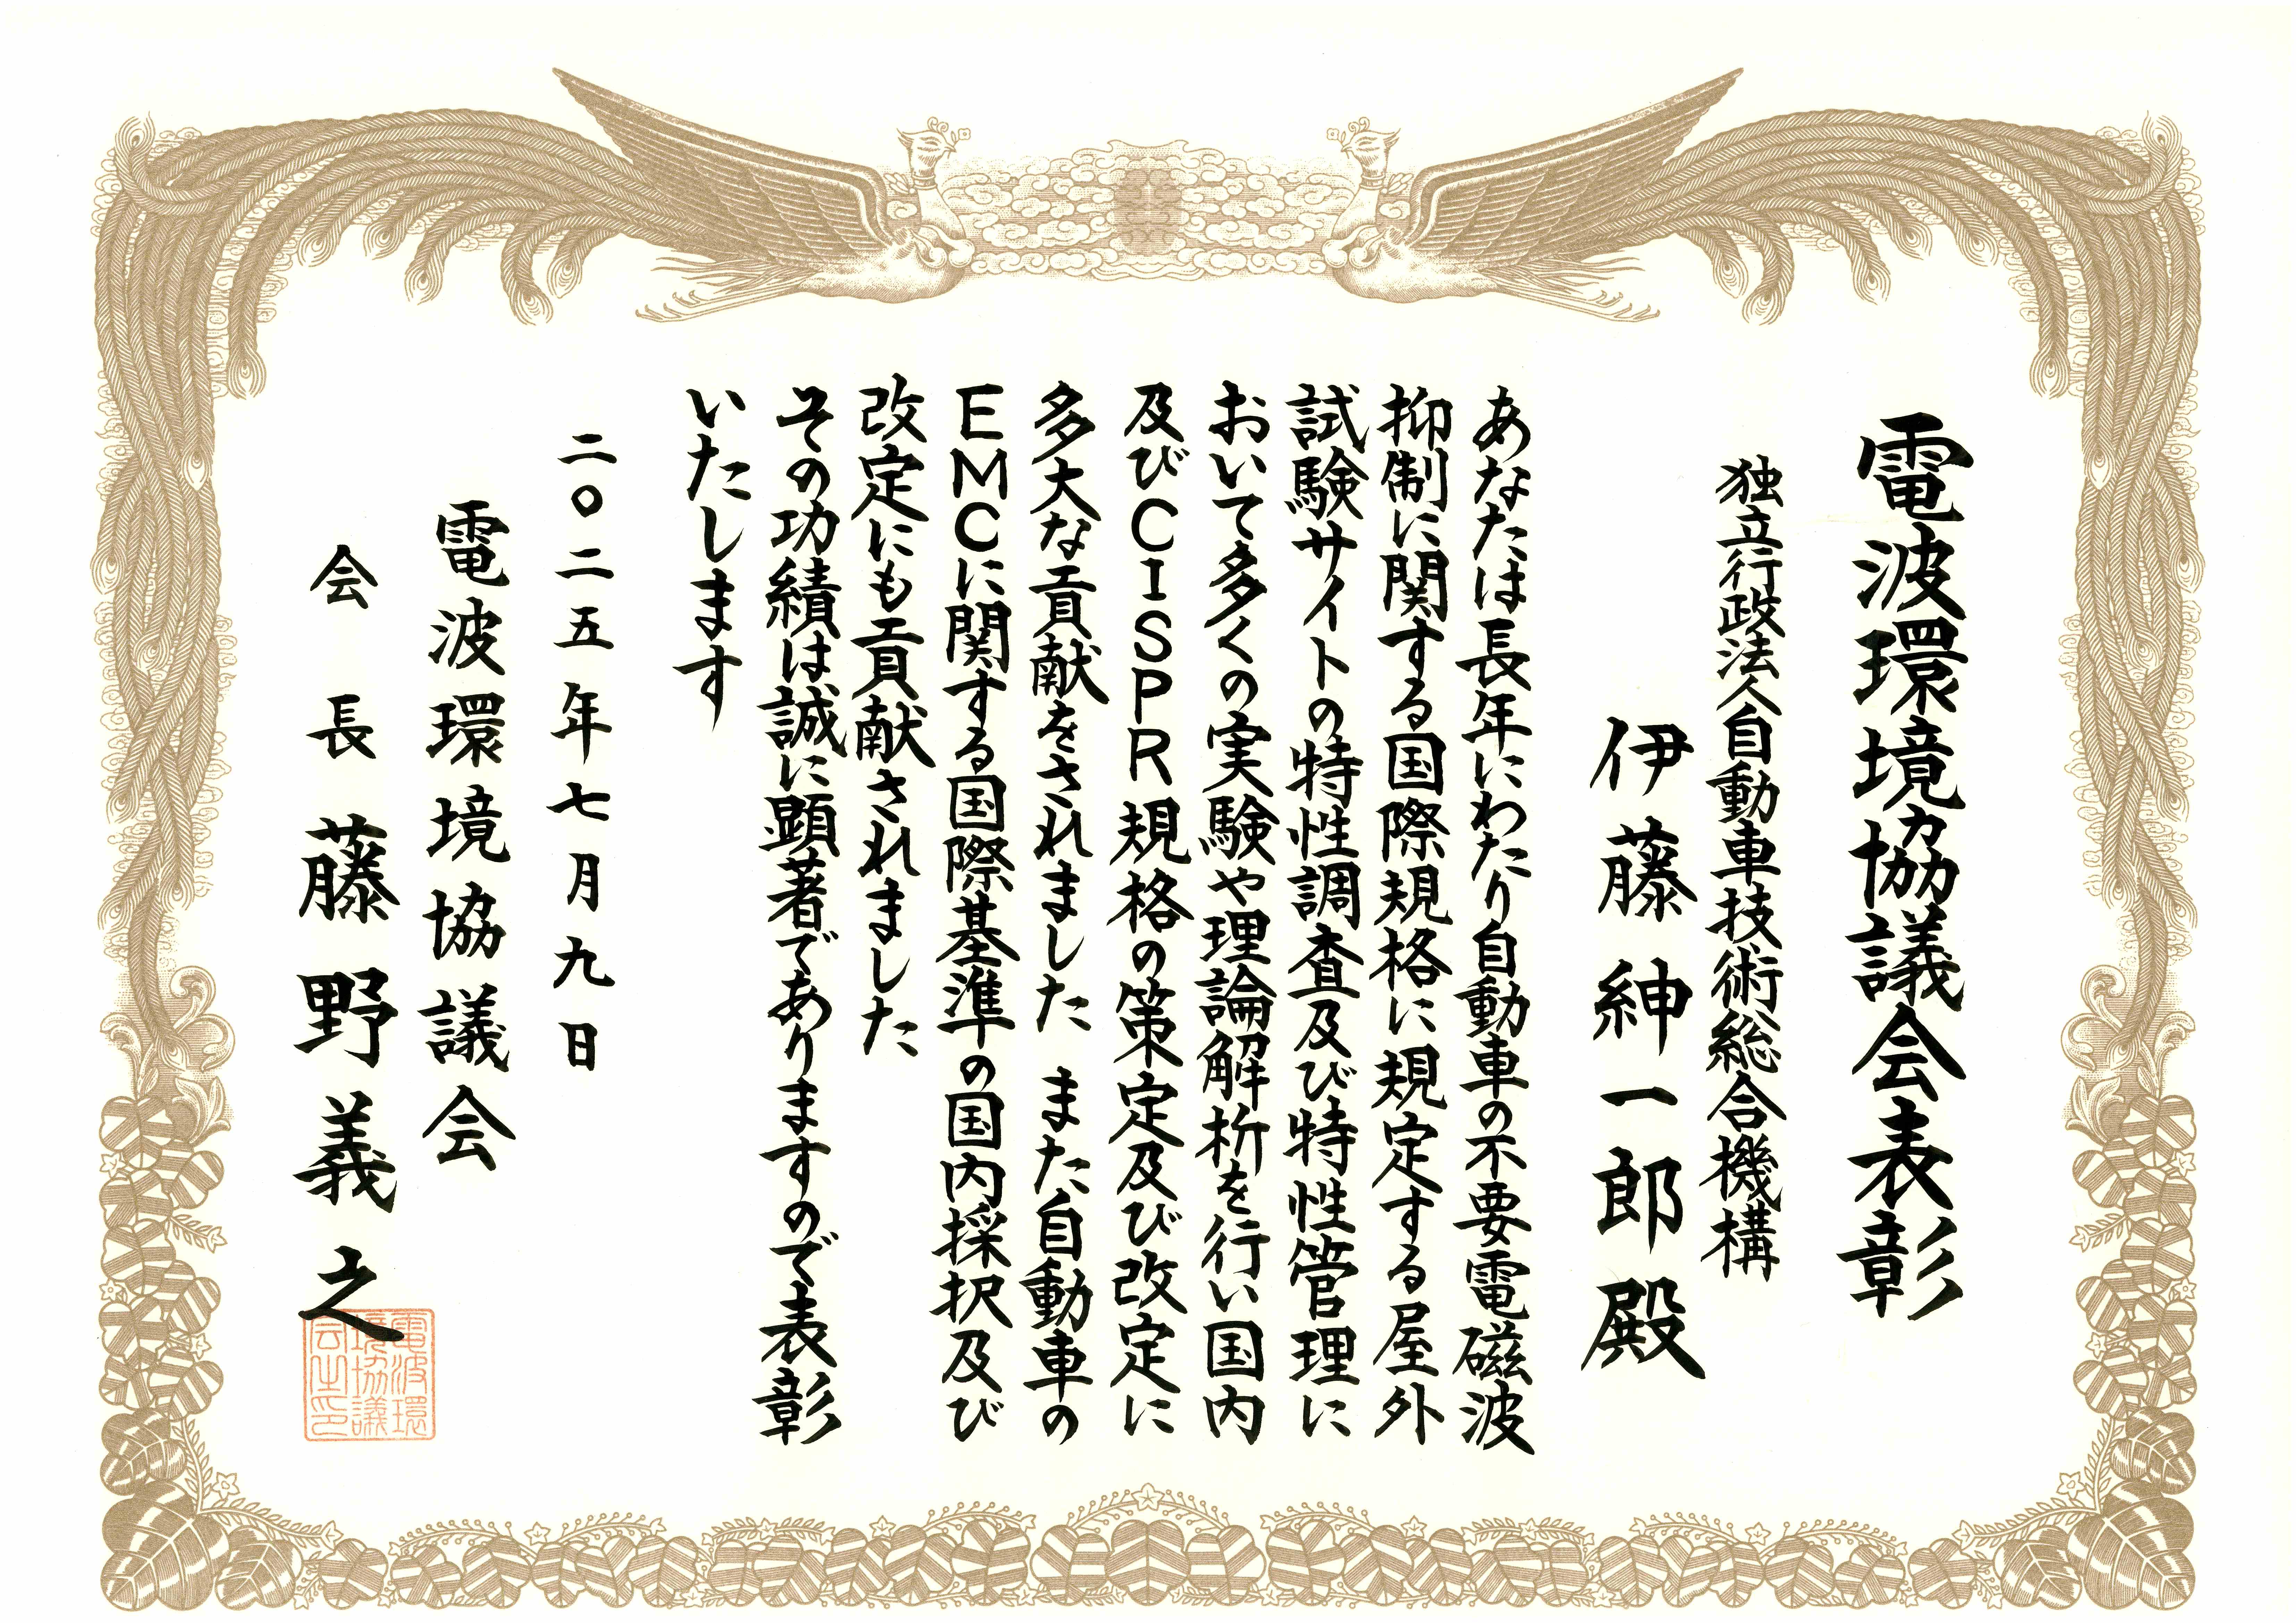 電波環境協議会表彰
独立行政法人自動車技術総合機構
伊藤紳一郎殿
あなたは長年にわたり自動車の不要電磁波
抑制に関する国際規格に規定する屋外
試験サイトの特性調査及び特性管理に
おいて多くの実験や理論解析を行い国内
及びCISPR規格の策定及び改定に
多大な貢献をされました また自動車の
EMCに関する国際基準の国内採択及び
改定にも貢献されました
その功績は誠に顕著でありますので表彰
いたします
二〇二五年七月九日
電波環境協議会
会長 藤野義之
電波環
境協議
会之印